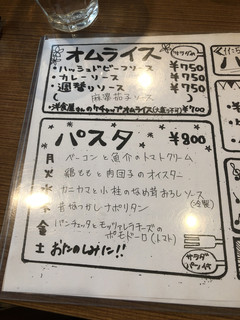 オムライス サラダ付
・ハッシュドビーフソース ¥750
・カレーソース ¥750
・週替りソース ¥750
(麻婆茄子ソース)
・洋食屋さんのケチャップオムライス ¥700
パスタ ¥800
月 ベーコンと魚介のトマトクリーム
火 鶏ももと肉団子のオイスター
水 カニカマと小柱のなめ茸おろしソース
(冷製)
木 昔なつかしナポリタン
金 パンチェッタとモッツァレラチーズの
ポモドーロ(トマト)
土 おたのしみに!!
サラダ
パン付